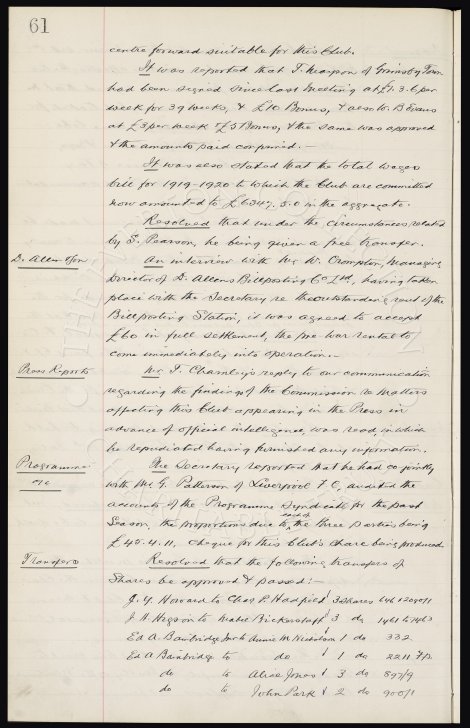 61
centre forward suitable for this Club.
It was reported that T. Mayson of Grimsby Town
had been signed since last meeting at £7.3.6 per
week for 39 weeks, & £10 Bonus, & also W. B Evans
at £3 per week & £5 Bonus, & the same was approved
& the amounts paid confirmed.—
It was also stated that the total wages
bill for 1919-1920 to which the Club are committed
now amounted to £6347.5.0 in the aggregate.
Resolved that under the circumstances related
by S. Pearson, he being given a free transfer.
D. Allen & Son
An interview with Mr W. Crompton, Managing
Director of D. Allens Billposting Co Ltd, having taken
place with the Secretary re the outstanding rent of the
Billposting Station, it was agreed to accept
£60 in full settlement, the pre war rental to
come immediately into operation.—
Press Reports
Mr T. Charnley's reply to our communication
regarding the findings of the Commission re matters
affecting this Club appearing in the Press in
advance of official intelligence, was read, in which
he repudiated having furnished any information.
Programme
a/c
The Secretary reported that he had co-jointly
with Mr G. Patterson of Liverpool F.C, audited the
accounts of the Programme Syndicate for the past
Season, the proportions due to each of the three parties being
£45.4.11, cheque for this Club's share being produced
Transfers
Resolved that the following transfers of
Shares be approved & passed:—
J. Y. Howard to Chas P. Hadfield 3 Shares
J. H. Higson to Mabel Bickerstaff 3 do 1461 to 1463
Ed A. Bainbridge Jnr to Annie M Nicholson 1 do 332
Ed A Bainbridge to do 1 do 2211
do to Alice Jones 3 do 897/9
do to John Park 2 do 900/1